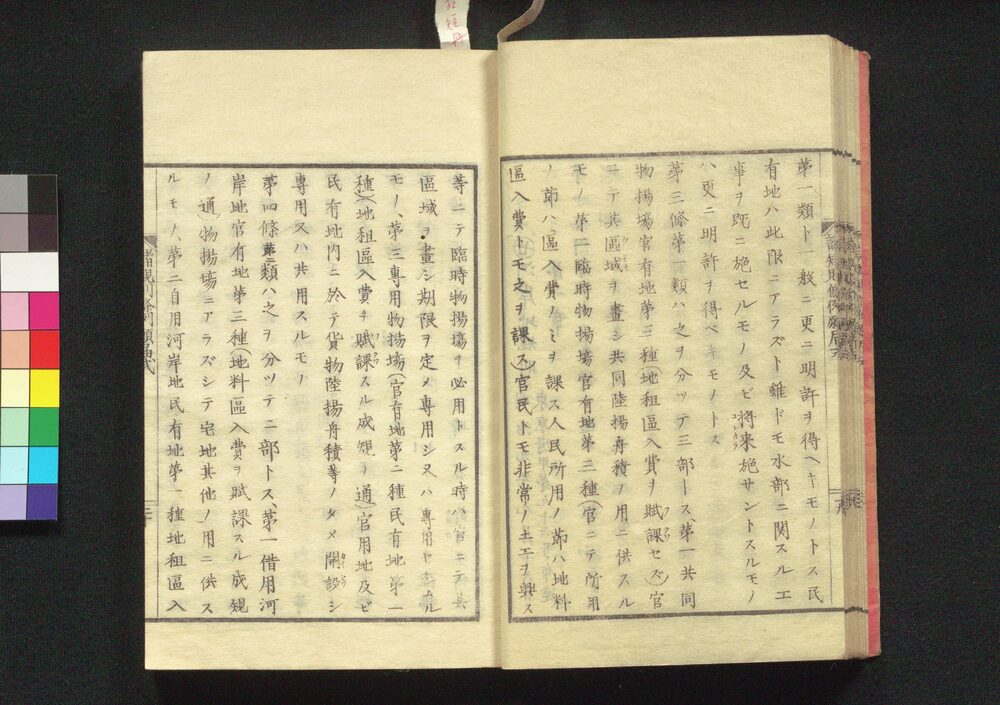 第一類ト一般ニ更ニ明許ヲ得ヘキモノトス民
有地ハ此限ニアラズト雖ドモ水部ニ関スル工
事ヲ既ニ施セルモノ及ビ将来施サントスルモノ
ハ更ニ明許ヲ得ベキモノトス
第三條第一類ハ之ヲ分ツテ三部トス第一共同
物揚場官有地第三種(地租區入費ヲ賦課セズ)官
ニテ其區域ヲ畫シ共同陸揚舟積ノ用ニ供スル
モノ第二臨時物揚場官有地第三種(官ニテ所用
ノ節ハ區入費ノミヲ課ス人民所用ノ節ハ地料
區入費トモ之ヲ課ス)官民トモ非常ノ土工ヲ興ス
等ニテ臨時物揚場ヲ必用トスル時ハ官ニテ其
區域ヲ畫シ期限ヲ定メ専用シ又ハ専用セシムル
モノ、第三専用物揚場(官有地第二種民有地第一
種)(地租區入費ヲ賦課スル成規ノ通)官用地及ビ
民有地内ニ於テ貨物陸揚舟積等ノタメ開設シ
専用又ハ共用スルモノ
第四條第二類ハ之ヲ分ツテ二部トス、第一借用河
岸地官有地第三種(地料區入費ヲ賦課スル成規
ノ通)物揚場ニアラズシテ宅地其他ノ用ニ供ス
ルモノ、第二自用河岸地民有地第一種地租區入